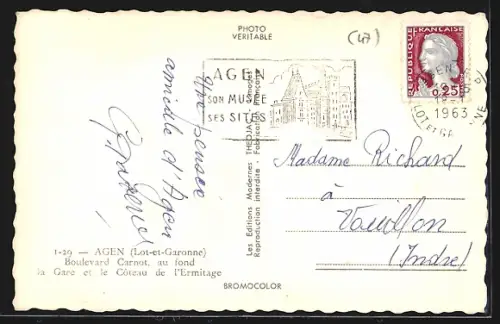 PHOTO
VERITABLE
(47)
AGEN
SON MUSÉE
SES SITES
REPUBLIQUE FRANÇAISE
0,25
1963
LOT ET GARONNE
Une pensée
amicale d'Agen
Les Editions Modernes THEOJAC
Reproduction interdite - Fabrication Française
Madame Richard
à
Vouillon
(Indre)
1-29 — AGEN (Lot-et-Garonne)
Boulevard Carnot, au fond
la Gare et le Côteau de l'Ermitage
BROMOCOLOR